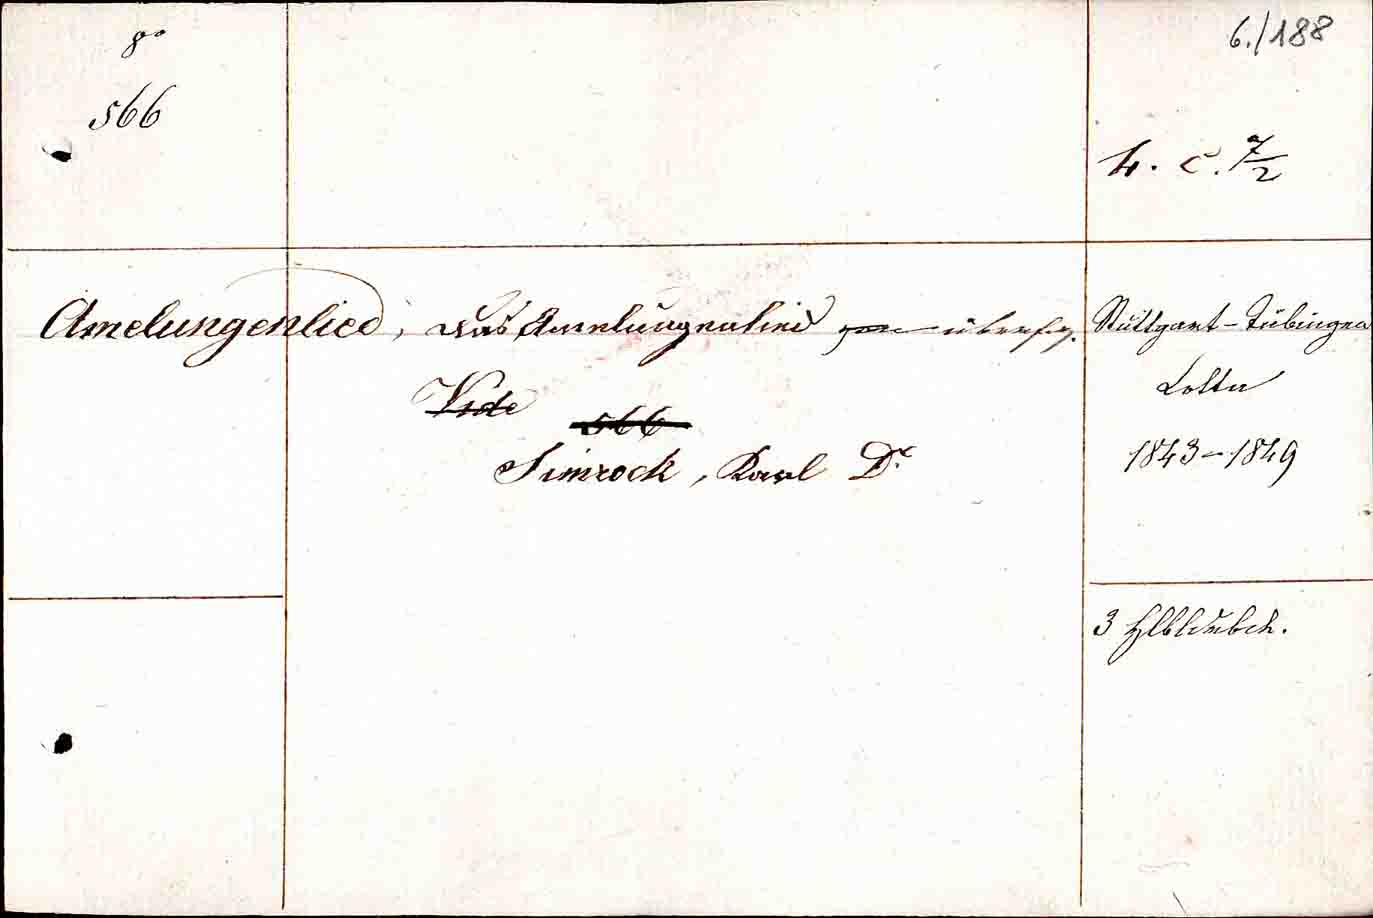 8°
6./188
566
h. c. 7/2
Amelungenlied, das Amelungenlied übersg.
Stuttgart-Tübingen
Vide
Cotta
566
Simrock, Karl Dr.
1843-1849
3 Hlbldrbde.